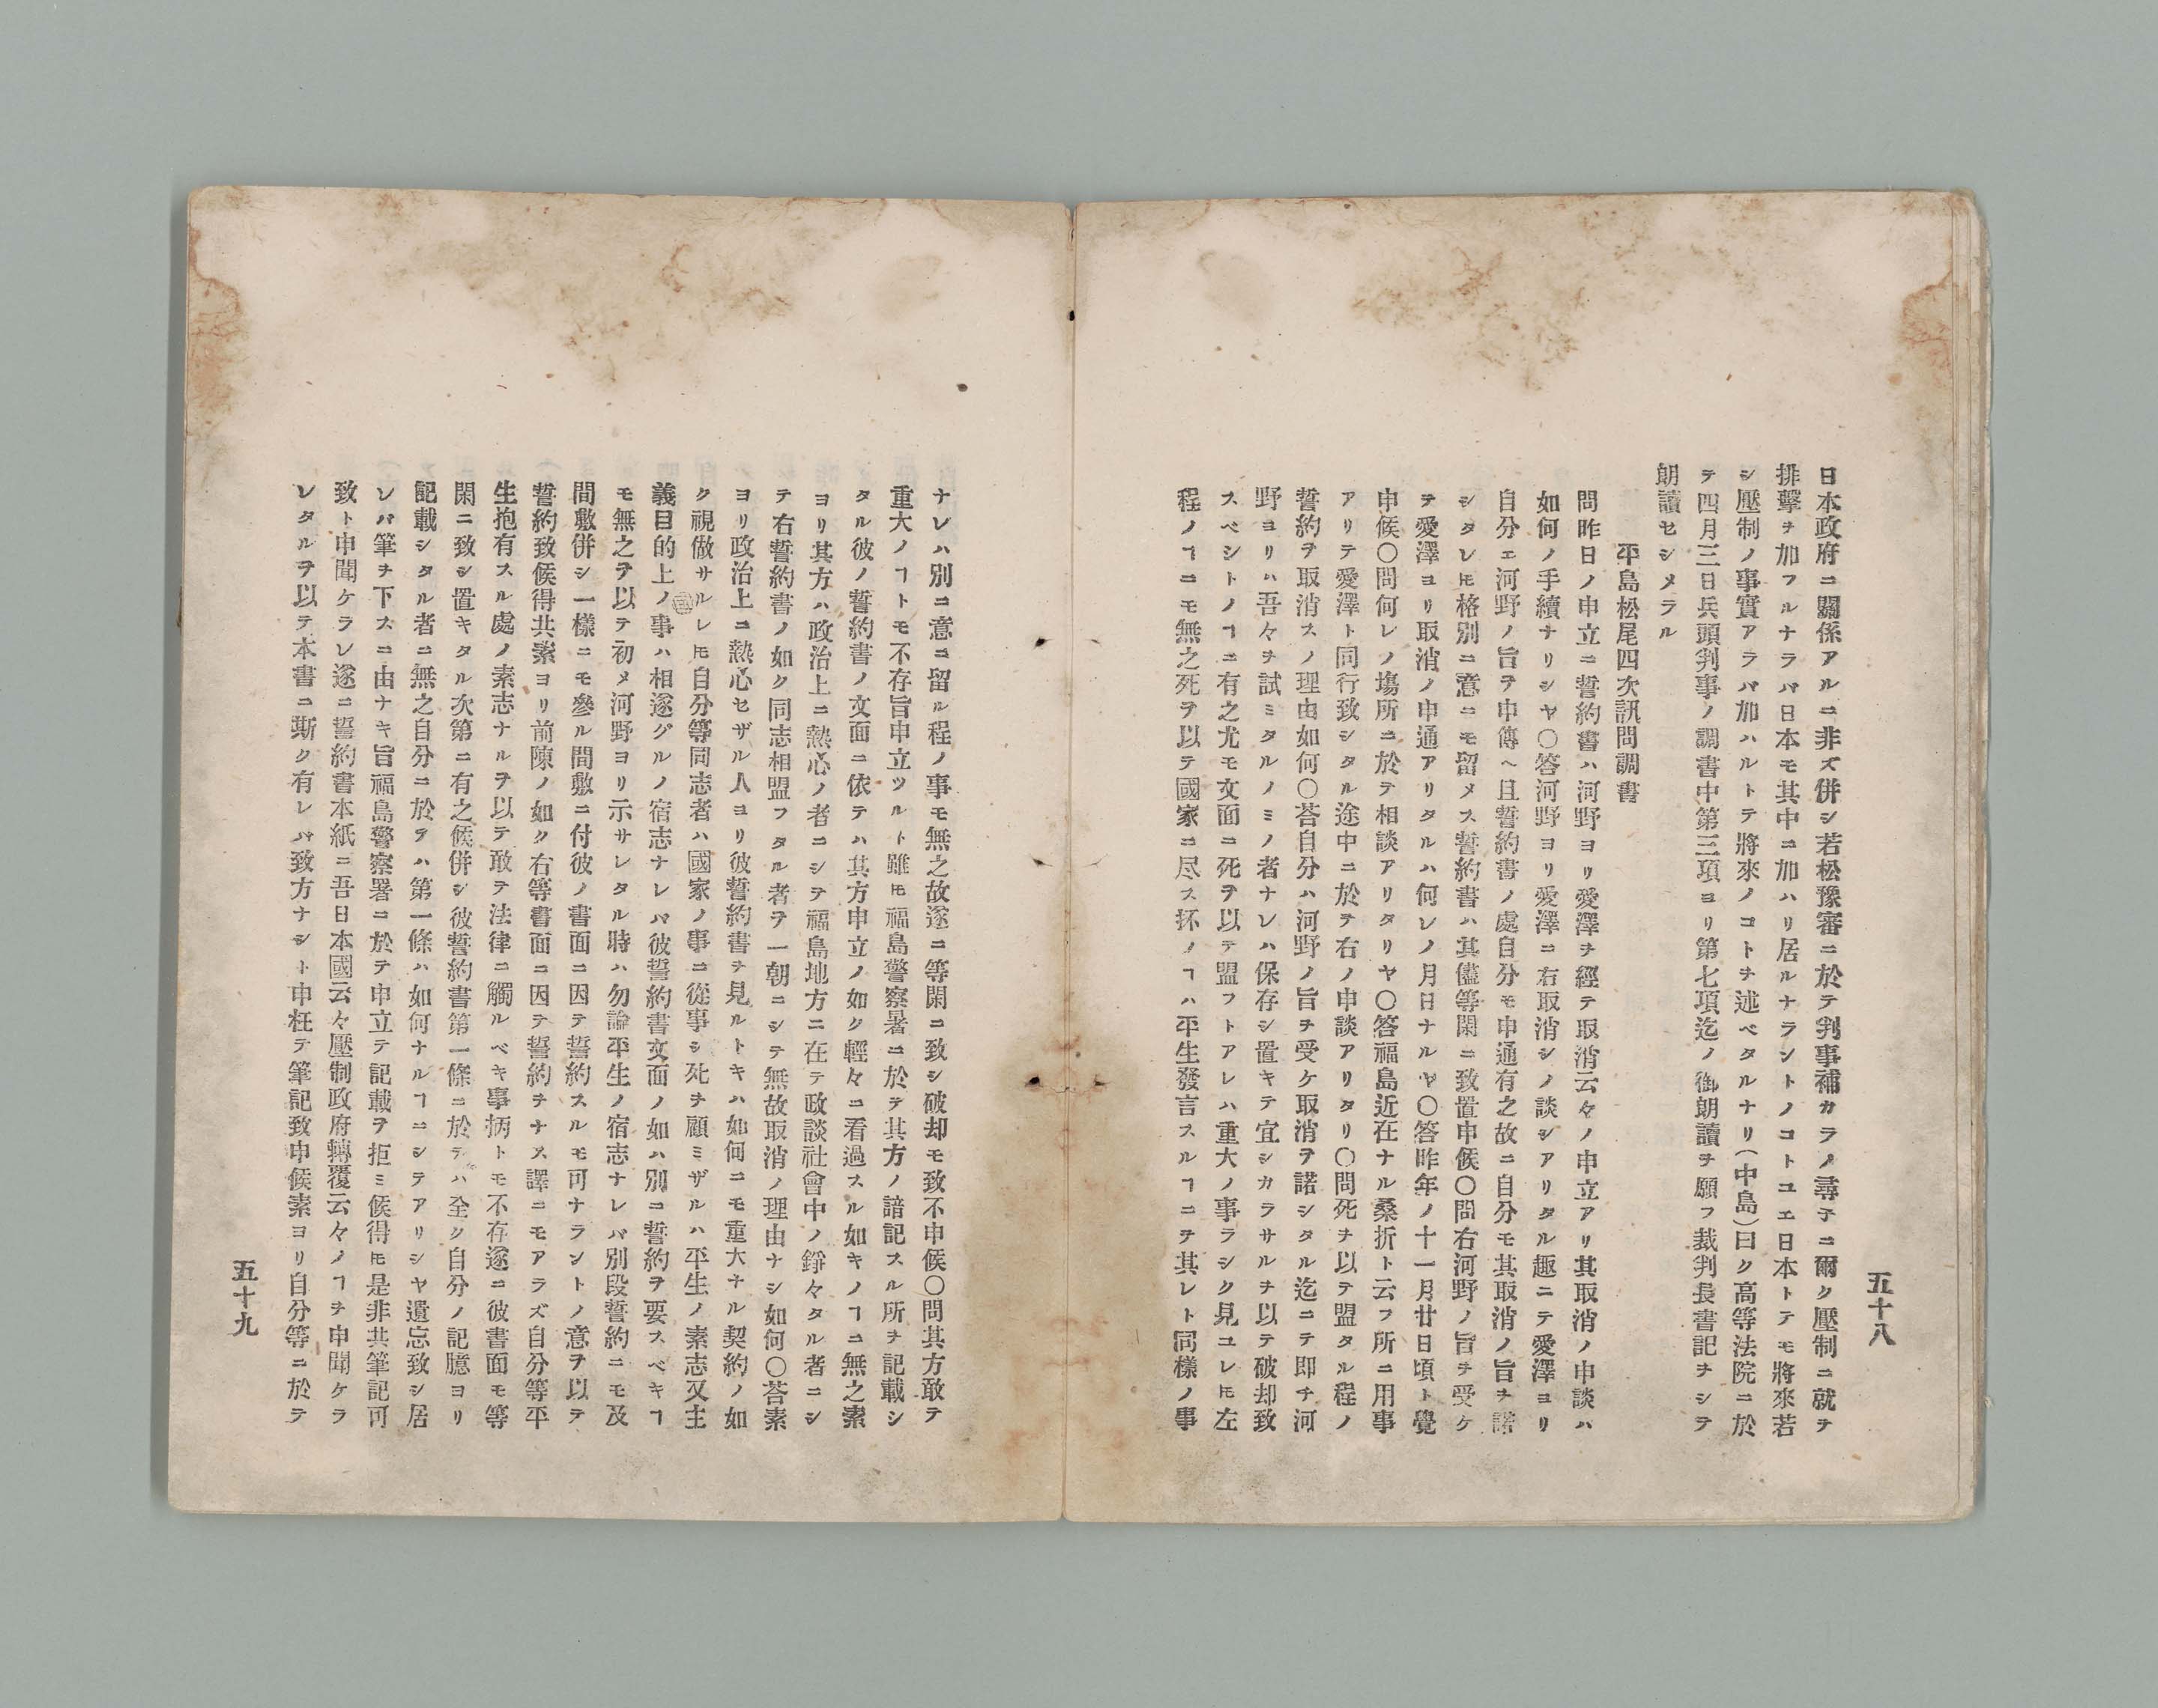 五十八
日本政府ニ關係アルニ非ズ併シ若松豫審ニ於テ判事補カラノ尋子ニ爾ク壓制ニ就ヲ
排擊ヲ加フルナラバ日本モ其中ニ加ハリ居ルナラントノコトユエ日本トテモ將來若
シ壓制ノ事實アラバ加ハルトテ將來ノコトヲ述ベタルナリ(中島)曰ク高等法院ニ於
テ四月三日兵頭判事ノ調書中第三項ヨリ第七項迄ノ御朗讀ヲ願フ裁判長書記ヲシテ
朗讀セシメラル
平島松尾四次訊問調書
問昨日ノ申立ニ誓約書ハ河野ヨリ愛澤ヲ經テ取消云々ノ申立アリ其取消ノ申談ハ
如何ノ手續ナリシヤ〇答河野ヨリ愛澤ニ右取消シノ談シアリタル趣ニテ愛澤ヨリ
自分エ河野ノ旨ヲ申傳ヘ且誓約書ノ處自分モ申通有之故ニ自分モ其取消ノ旨ヲ諾
シタレㇳモ格別ニ意ニモ留メス誓約書ハ其儘等閑ニ致置申候〇問右河野ノ旨ヲ受ケ
ヲ愛澤ヨリ取消ノ申通アリタルハ何レノ月日ナルヤ〇答昨年ノ十一月廿日頃ト覺
申候〇問何レノ塲所ニ於テ相談アリタリヤ〇答福島近在ナル桑折ト云フ所ニ用事
アリテ愛澤ト同行致シタル途中ニ於テ右ノ申談アリタリ〇問死ヲ以テ盟タル程ノ
誓約ヲ取消スノ理由如何〇荅自分ハ河野ノ旨ヲ受ケ取消ヲ諾シタル迄ニテ即チ河
野ヨリハ吾々ヲ試ミタルノミノ者ナレハ保存シ置キテ宜シカラサルヲ以テ破却致
スベシトノヿニ有之尤モ文面ニ死ヲ以テ盟フトアレハ重大ノ事ラシク見ユレㇳモ左
程ノヿニモ無之死ヲ以テ國家ニ尽ス抔ノヿハ平生發言スルヿニテ其レト同樣ノ事
ナレハ別ニ意ニ留ル程ノ事モ無之故遂ニ等閑ニ致シ破却モ致不申候〇問其方敢テ
重大ノヿトモ不存旨申立ツルト雖ㇳモ福島警察署ニ於テ其方ノ諳記スル所ヲ記載シ
タル彼ノ誓約書ノ文面ニ依テハ其方申立ノ如ク輕々ニ看過スル如キノヿニ無之素
ヨリ其方ハ政治上ニ熱心ノ者ニシテ福島地方ニ在テ政談社會中ノ錚々タル者ニシ
テ右誓約書ノ如ク同志相盟フタル者ヲ一朝ニシテ無故取消ノ理由ナシ如何〇荅素
ヨリ政治上ニ熱心セザル人ヨリ彼誓約書ヲ見ルトキハ如何ニモ重大ナル契約ノ如
ク視做サルレㇳモ自分等同志者ハ國家ノ事ニ從事シ死ヲ顧ミザルハ平生ノ素志又主
義目的上ノ事ハ相遂グルノ宿志ナレバ彼誓約書文面ノ如ハ別ニ誓約ヲ要スベキヿ
モ無之ヲ以テ初メ河野ヨリ示サレタル時ハ勿論平生ノ宿志ナレバ別段誓約ニモ及
間敷併シ一樣ニモ參ル間敷ニ付彼ノ書面ニ因テ誓約スルモ可ナラントノ意ヲ以テ
誓約致候得共素ヨリ前陳ノ如ク右等書面ニ因テ誓約ヲナス譯ニモアラズ自分等平
生抱有スル處ノ素志ナルヲ以テ敢テ法律ニ觸ルベキ事柄トモ不存遂ニ彼書面モ等
閑ニ致シ置キタル次第ニ有之候併シ彼誓約書第一條ニ於テハ全ク自分ノ記臆ヨリ
記載シタル者ニ無之自分ニ於ヲハ第一條ハ如何ナルヿニシテアリシヤ遺忘致シ居
レバ筆ヲ下スニ由ナキ旨福島警察署ニ於テ申立テ記載ヲ拒ミ候得ㇳモ是非共筆記可
致ト申聞ケラレ遂ニ誓約書本紙ニ吾日本國云々壓制政府轉覆云々ノヿヲ申聞ケラ
レタルヲ以テ本書ニ斯ク有レバ致方ナシト申枉テ筆記致申候素ヨリ自分等ニ於テ
五十九